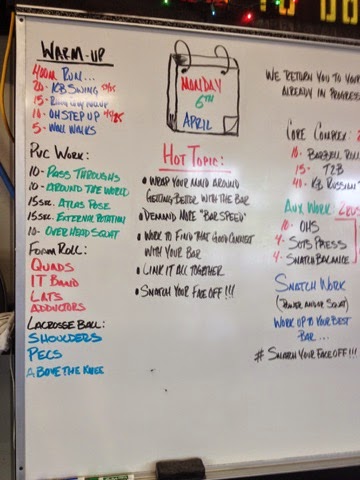 WARM-UP
400M RUN...
20- KB SWING
15-
10- OH STEP UP
5- WALL WALKS
PVC WORK:
10- PASS THROUGHS
10- AROUND THE WORLD
15SEC. ATLAS POSE
15SEC. EXTERNAL ROTATION
10- OVERHEAD SQUAT
FOAM ROLL:
QUADS
IT BAND
LATS
ADDUCTORS
LACROSSE BALL:
SHOULDERS
PECS
ABOVE THE KNEE
MONDAY
6TH
APRIL
HOT TOPIC:
• WRAP YOUR MIND AROUND
GETTING BETTER WITH THE BAR
• DEMAND MORE "BAR SPEED"
• WORK TO FIND THAT GOOD CONNECT
WITH YOUR BAR
• LINK IT ALL TOGETHER
• SNATCH YOUR FACE OFF!!!
WE RETURN YOU TO YOUR
ALREADY IN PROGRESS
CORE COMPLEX:
10- BARBELL ROLL
15- T2B
40- KB RUSSIAN
AUX. WORK:
10- OHS
4- SOTS PRESS
4- SNATCH BALANCE
SNATCH WORK
(POWER AND/OR SQUAT)
WORK UP TO YOUR BEST
BAR...
# SNATCH YOUR FACE OFF!!!